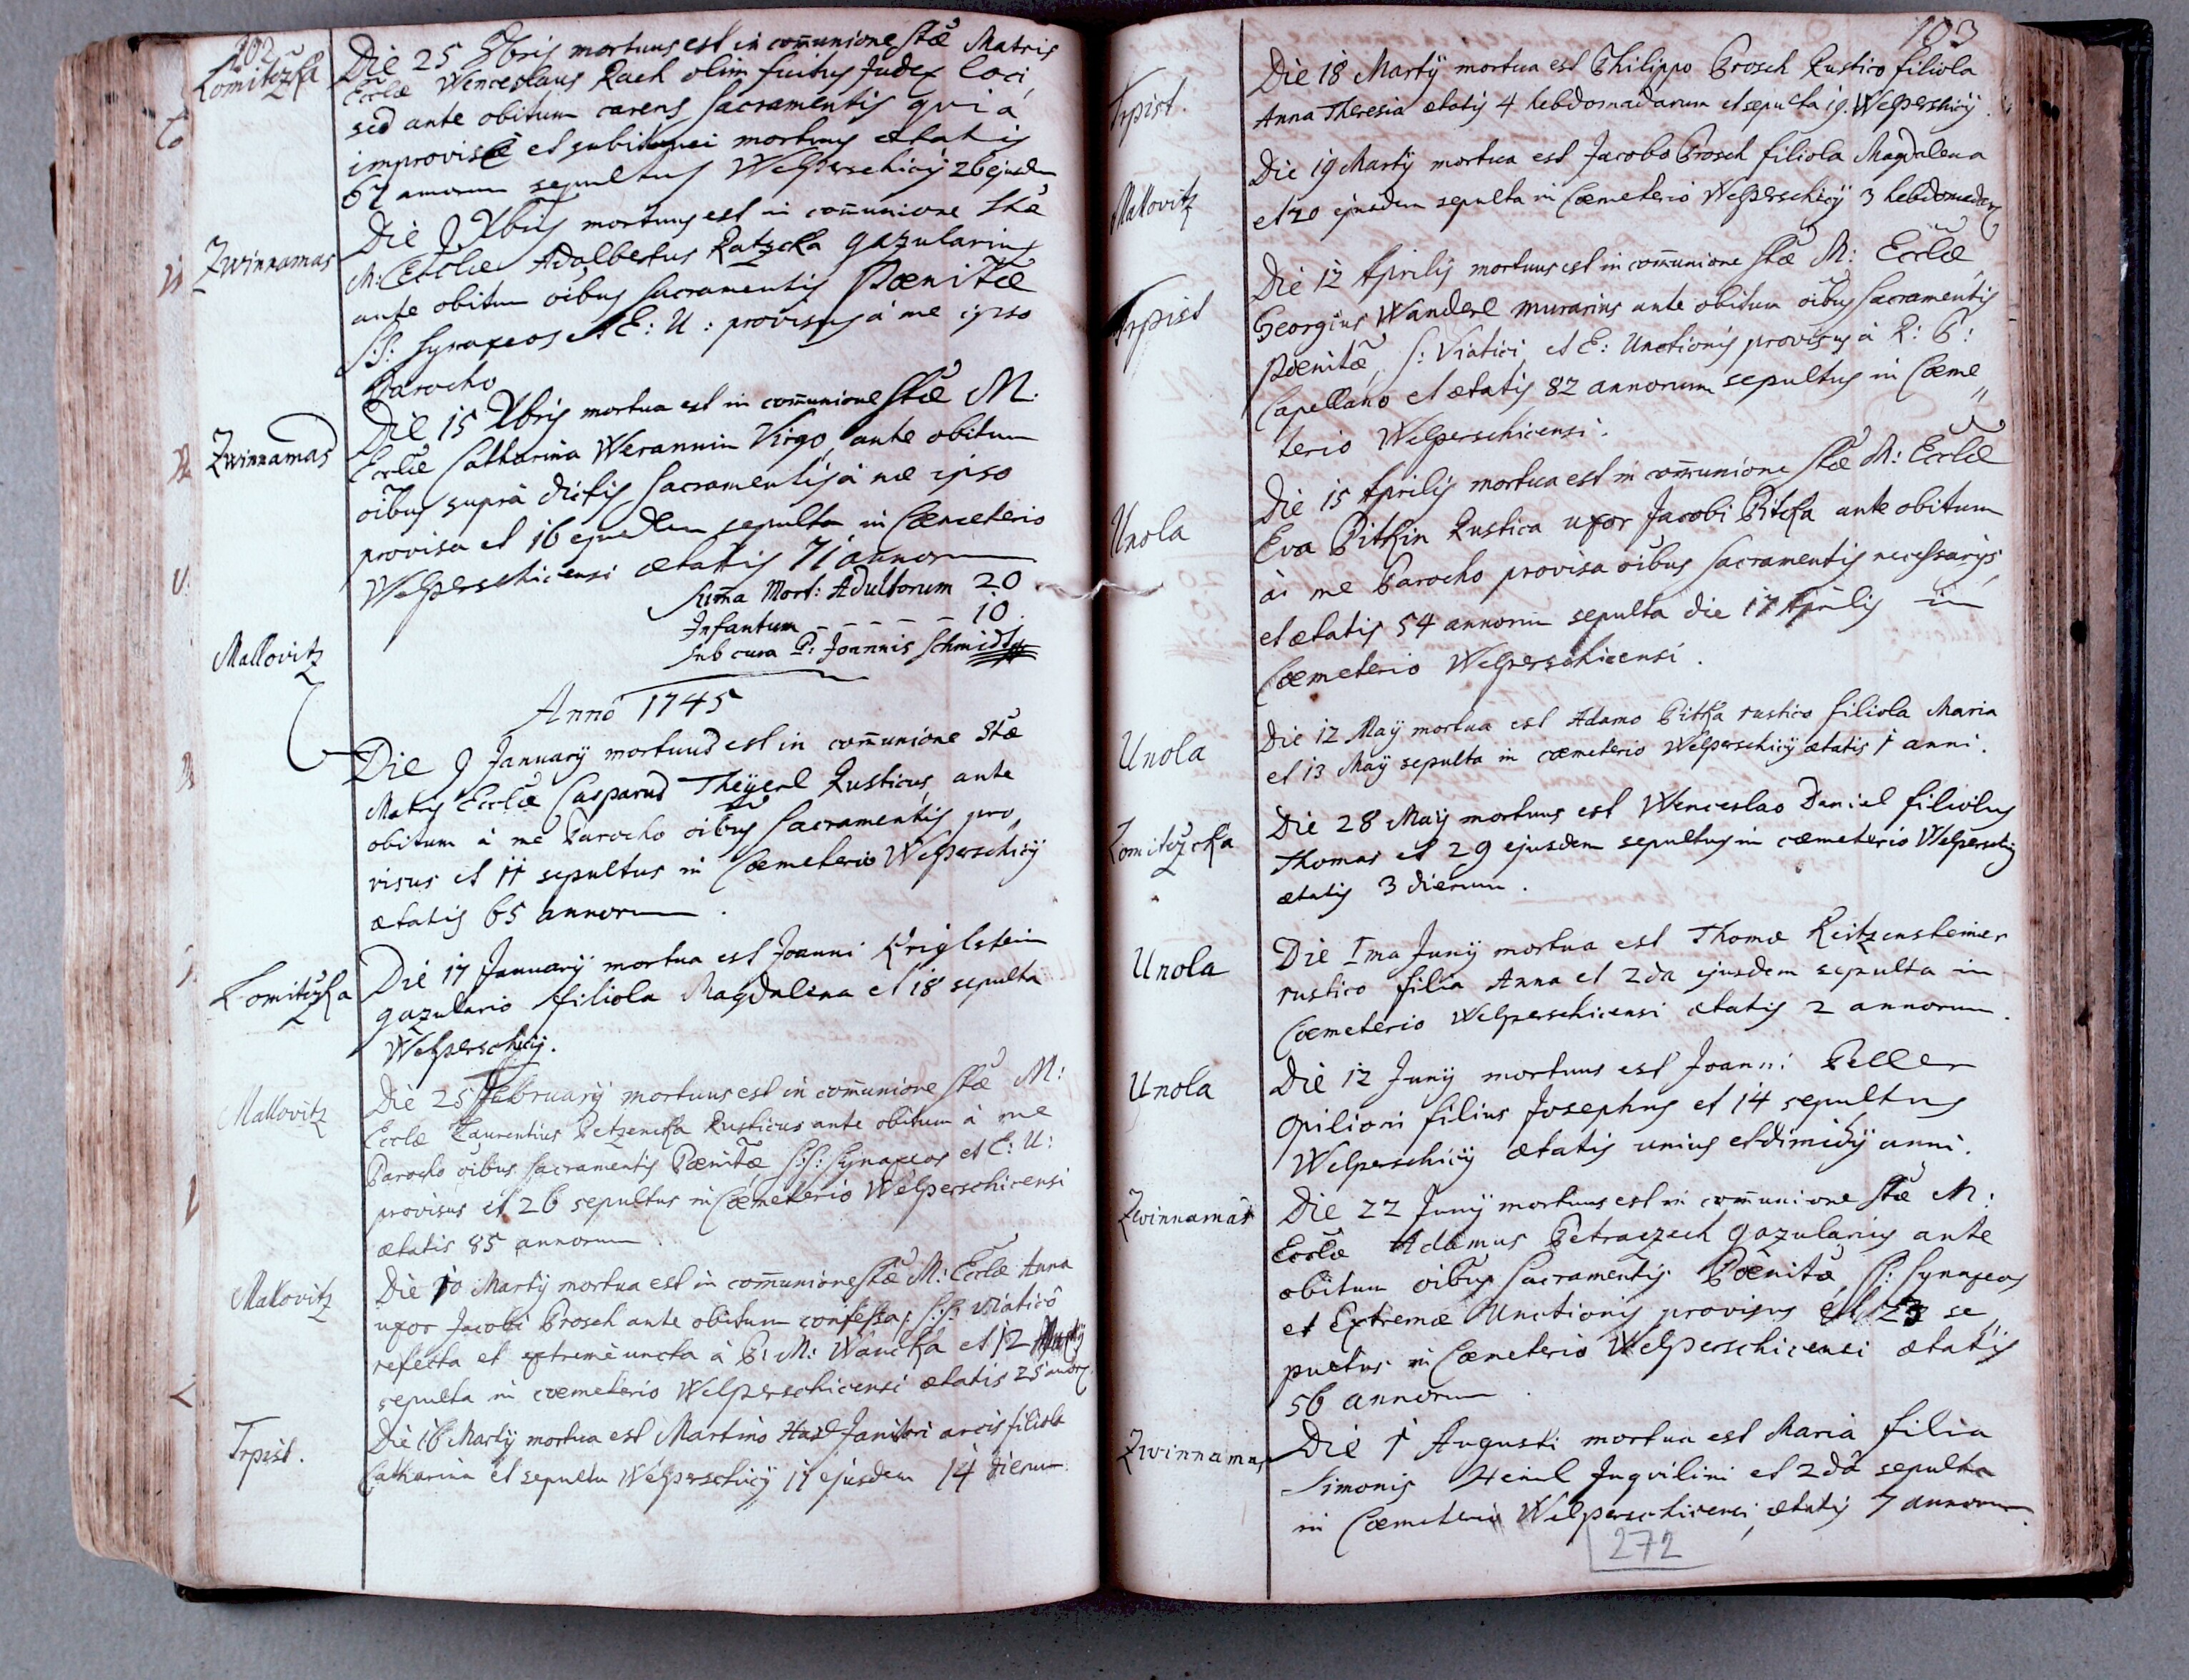 102
Lomitczka
Die 25 9bris mortuus est in com̄unione Stæ Matris
Eccłæ Wenceslaus Rach olim fuitus Judex loci,
sed ante obitum carens Sacramentis quia
improvisè et mortuus ætatis
67 annorum sepultus Welperschicÿ 26 ejusdem
Zwinnamas
Die 9 Xbris mortuus est in com̄unione Stæ
M: Eccłæ Adalbertus Ratzcka gazularius
ante obitum oibus Sacramentis Pœnitæ
S:S: Synaxeos et E: U: provisus à me ipso
Parocho
Zwinnamas
Die 15 Xbris mortua est in com̄unione Stæ M:
Eccłæ Catharina Werannin Virgo, ante obitum
oibus suprà dictis Sacramentis à me ipso
provisa et 16 ejusdem sepulta in Cœmeterio
Welperschicensi ætatis 71 annorum
Sum̄a Mort: Adultorum 20
Infantum - - - - - 10.
sub cura P: Joannis Schmidt
Anno 1745
Mallovitz
Die 9 Januarÿ mortuus est in com̄unione Stæ
Matris Eccłæ Casparus Theÿerl Rusticus, ante
obitum à me Parocho oibus Sacramentis pro,
visus et 11 sepultus in Cœmeterio Welperschicÿ
ætatis 65 annorum.
Lomitczka
Die 17 Januarÿ mortua est Joanni Kriglstein
gazulario filiola Magdalena et 18 sepulta
Welperschicÿ.
Mallovitz
Die 25 Februarÿ mortuus est in com̄unione Stæ M:
Eccłæ Laurentius Petzencka Rusticus ante obitum à me
Parocho oibus Sacramentis Pœnitæ, S:S: Synaxeos et E: U:
provisus et 26 sepultus in Cœmeterio Welperschicensi
ætatis 85 annorum.
Mallovitz
Die 10 Martÿ mortua est in com̄unione Stæ M: Eccłæ Anna
uxor Jacobi Brosch ante obitum confessa, S:S: viaticô
refecta et extremè uncta à P: M: Wancka et 12 Martÿ
sepulta in cœmeterio Welperschicensi ætatis 25 annorū.
Trpist.
Die 16 Martÿ mortua est Martino Hasl Janitori arcis filiola
Catharina et sepulta Welperschicÿ 17 ejusdem 14 dierum.
103
Trpist.
Die 18 Martÿ mortua est Philippo Brosch Rustico filiola
Anna Theresia ætatis 4 hebdomadarum et sepulta 19. Welperschicÿ.
Mallovitz
Die 19 Martÿ mortua est Jacobo Brosch filiola Magdalena
et 20 ejusdem sepulta in Cœmeterio Welperschicÿ 3 hebdomadarū
Trpist
Die 12 Aprilis mortuus est in com̄unione Stæ M: Eccłæ
Georgius Wanderl murarius ante obitum oibus Sacramentis
Pœnitæ, S: Viatici, et E: Unctionis provisus à R: P:
Capellano et ætatis 82 annorum sepultus in Cœme„
terio Welperschicensi.
Unola
Die 15 Aprilis mortua est in com̄unione Stæ M: Eccłæ
Eva Pitkin Rustica uxor Jacobi Pitcka ante obitum
à me Parocho provisa oibus Sacramentis necessarÿs,
et ætatis 54 annorum sepulta die 17 Aprilis in
Cœmeterio Welperschicensi.
Unola
Die 12 Maÿ mortua est Adamo Pitka rustico filiola Maria
et 13 Maÿ sepulta in cœmeterio Welperschicÿ ætatis 1 anni.
Lomitczcka
Die 28 Maÿ mortuus est Wenceslao Daniel filiolus
Thomas et 29 ejusdem sepultus in cœmeterio Welperschicÿ
ætatis 3 dierum.
Unola
Die Ima Junÿ mortua est Thomæ Reitzensteiner
rustico filia Anna et 2da ejusdem sepulta in
Cœmeterio Welperschicensi ætatis 2 annorum.
Unola
Die 12 Junÿ mortuus est Joanni Peller
opilioni filius Josephus et 14 sepultus
Welperschicÿ ætatis unius et dimidÿ anni.
Zwinnamas
Die 22 Junÿ mortuus est in com̄unione Stæ M:
Eccłæ Adamus Petraczech gazularius ante
obitum oibus Sacramentis Pœnitæ, S: Synaxeos
et Extremæ Unctionis provisus et 23 se„
pultus in Cœmeterio Welperschicensi ætatis
56 annorum.
Zwinnamas
Die 1 Augusti mortua est Maria filia
Simonis Heinl Inquilini et 2dâ sepulta
in Cœmeterio Welperschicensi, ætatis 7 annorum.
272